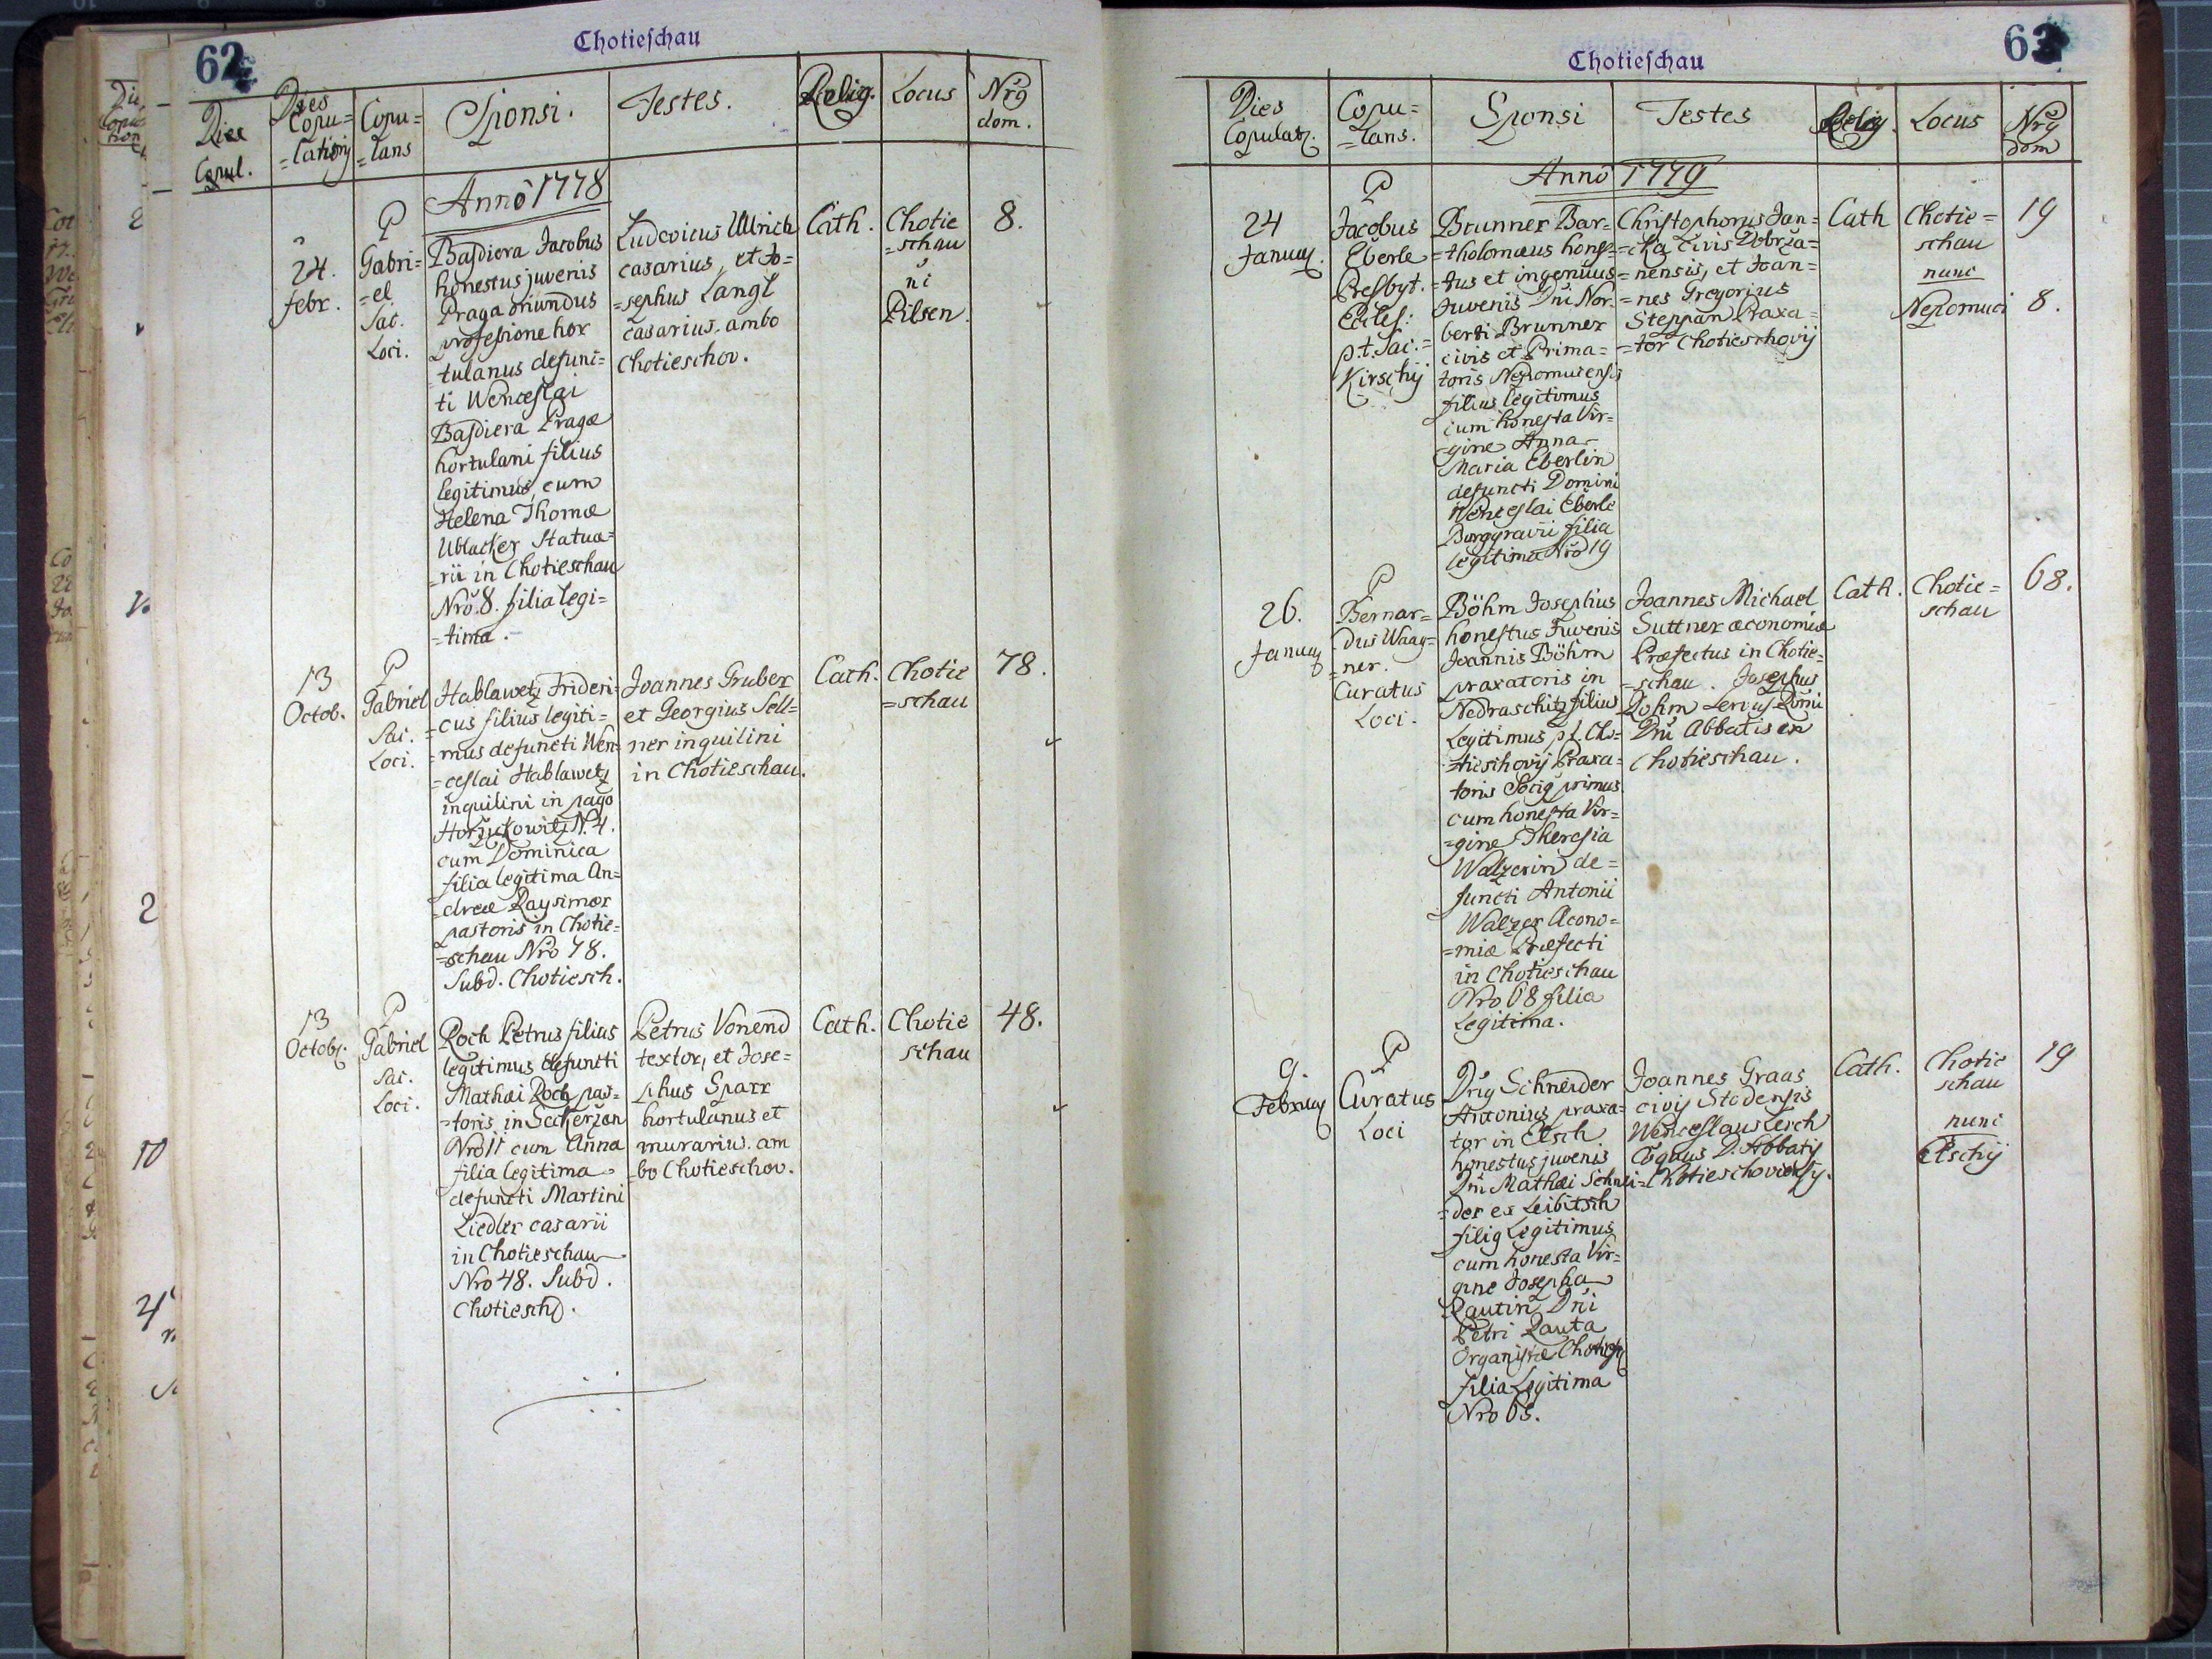 62
Chotieschau
Dies
Copul.
Dies
Copu=
=lationis
Copu=
=lans
Sponsi.
Testes.
Relig.
Locus
Nrg
dom.
Anno 1778
24.
febr.
P
Gabri=
=el
Sac.
Loci.
Basdiera Jacobus
honestus juvenis
Praga oriundus
professione hor
tulanus defunc=
ti Wenceslai
Basdiera Pragæ
hortulani filius
legitimus, cum
Helena Thomæ
Ublacker Statua=
=rii in Chotieschau
Nrõ. 8. filia legi=
=tima.
Ludovicus Ullrich
casarius, et Jo=
=sephus Langl
casarius, ambo
Chotieschov.
Cath.
Chotie
=schau
Pilsen.
8.
13
Octob.
P
Gabriel
Sac.
Loci.
Hablawetz Frideri=
=cus filius legiti=
=mus defuncti Wen=
=ceslai Hablawetz
inquilini in pago
N. 4.
cum Dominica
filia legitima An=
=dreæ Raysimor
pastoris in Chotie=
=schau Nro 78.
Subd. Chotiesch.
Joannes Gruber
et Georgius Sell=
ner inquilini
in Chotieschau.
Cath.
Chotie
=schau
78.
13
Octobr.
P
Gabriel
Sac.
Loci.
Roch Petrus filius
legitimus defuncti
Mathæi Roch pas=
=toris in
Nro 11 cum Anna
filia legitima
defuncti Martini
Liedler casarii
in Chotieschau
Nro 48. Subd.
Chotiesch.
Petrus Vonend
textor, et Jose=
phus Sparr
hortulanus et
murarius. am
=bo Chotieschov.
Cath.
Chotie
schau
48.
63
Chotieschau
Dies
Copulat.
Copu=
=lans.
Sponsi
Testes
Relig.
Locus
Nrg
dom
Anno 1779
24
Januarij.
P
Jacobus
Eberle
Presbyt.
Eccles:
p.t. Sac.=
Kirschij
Brunner Bar=
=tholomæus hones=
=tus et ingenuus
Juvenis Dni Nor=
berti Brunner
civis et Prima=
toris Nepomucensis
filius legitimus
cum honesta Vir=
=gine Anna
Maria Eberlin
defuncti Domini
Wenceslai Eberle
Burggravii filia
legitima Nrõ 19
Christophorus Jan=
=cka Civis Dobrža=
=nensis, et Joan=
=nes Gregorius
Steppan Braxa=
=tor Chotieschovij
Cath
Chotie=
schau
nunc
Nepomuci
19
8.
26.
Januarij
P
Bernar=
dus Waag=
=ner.
Curatus
Loci.
Böhm Josephus
honestus Juvenis
Joannis Böhm
praxatoris in
Nedraschitz filius
Legitimus p.t. Cho=
=tieschovij Praxa=
toris Socig primus
cum honesta Vir=
=gine Theresia
Walzerin de=
functi Antonii
Walzer Acono=
=miæ Præfecti
in Chotieschau
Nro 68 filia
Legitima.
Joannes Michael
Suttner æconomiæ
Præfectus in Chotie=
=schau. Josephus
Dni Abbatis ex
Chotieschau.
Cath.
Chotie=
schau
68.
9.
Februarij
P
Curatus
Loci
Dng Schneider
Antonius praxa=
tor in Elsch
honestus juvenis
Dni Mathæi Schnei=
=der ex Leibitsch
filig Legitimus
cum honesta Vir=
gine Josepha
Rautin Dni
Petri Rauta
Organistæ Chotiesch
filia Legitima
Nro 65.
Joannes Graas
civis Stodensis
Wenceslaus Lerch
Coquus D. Abbatis
Chotieschoviensis.
Cath.
Chotie
schau
nunc
Elschij
19